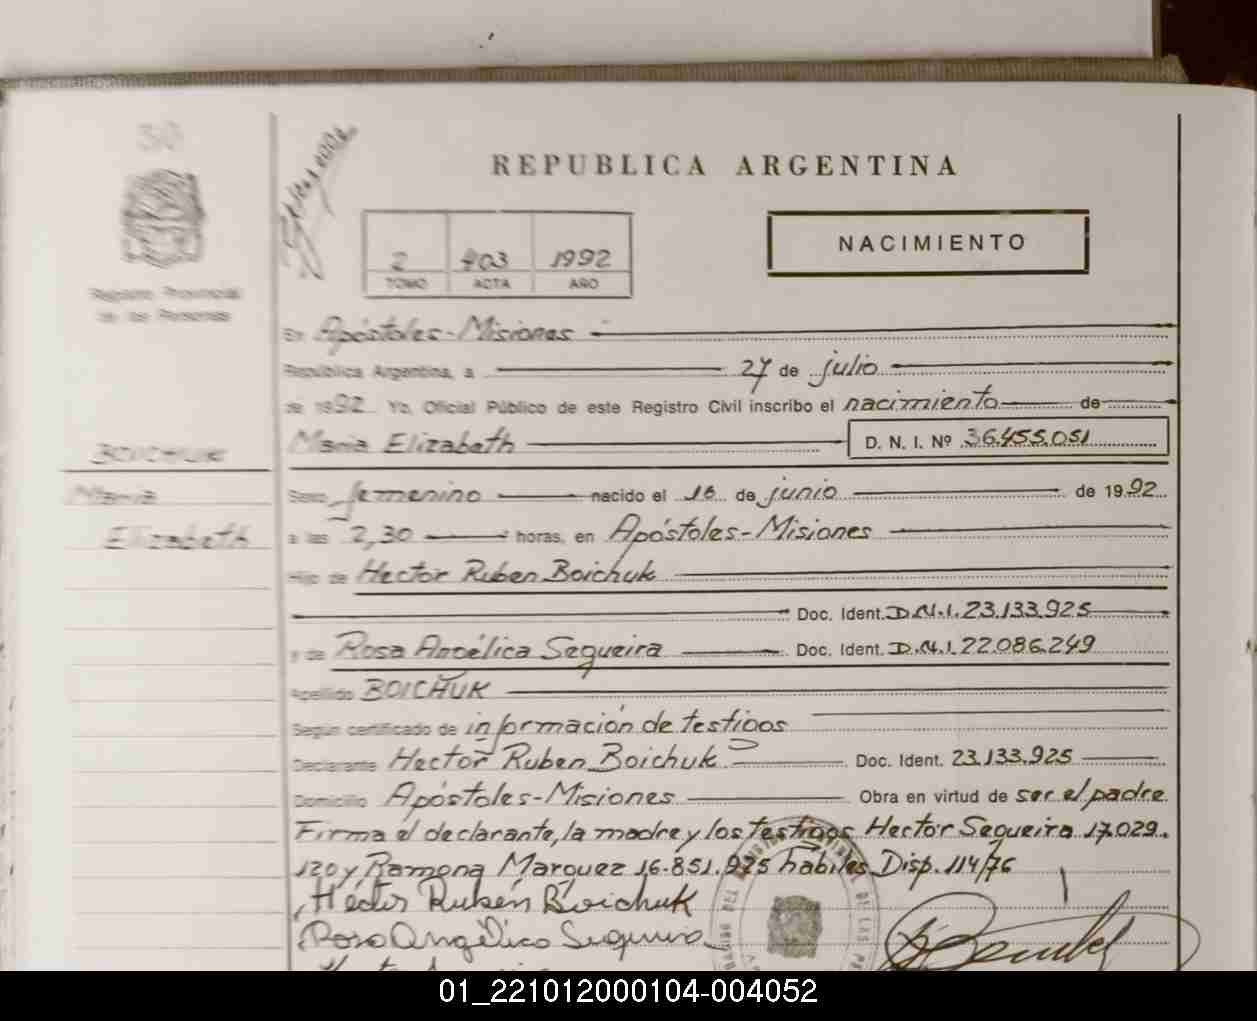 30
REPUBLICA ARGENTINA
NACIMIENTO
2 403 1992
TOMO ACTA AÑO
Registro Provincial
de las Personas
En Apóstoles-Misiones
República Argentina, a 27 de julio
de 1992 Yo, Oficial Público de este Registro Civil inscribo el nacimiento de
Maria Elizabeth D. N. I. Nº 36.455.051
BOICHUK
Maria
Elizabeth
Sexo femenino nacido el 16 de junio de 1992
a las 2,30 horas, en Apóstoles-Misiones
Hijo de Hector Ruben Boichuk
Doc. Ident. D.N.I. 23.133.925
y de Rosa Angélica Segueira Doc. Ident. D.N.I. 22.086.249
Apellido BOICHUK
Según certificado de información de testigos
Declarante Hector Ruben Boichuk Doc. Ident. 23.133.925
Domicilio Apóstoles-Misiones Obra en virtud de ser el padre
Firma el declarante, la madre y los testigos Hector Segueira 17.029.
120 y Ramona Márquez 16.851.925 hábiles Disp. 114/76
Héctor Rubén Boichuk
Rosa Angélica Segueira
01_221012000104-004052